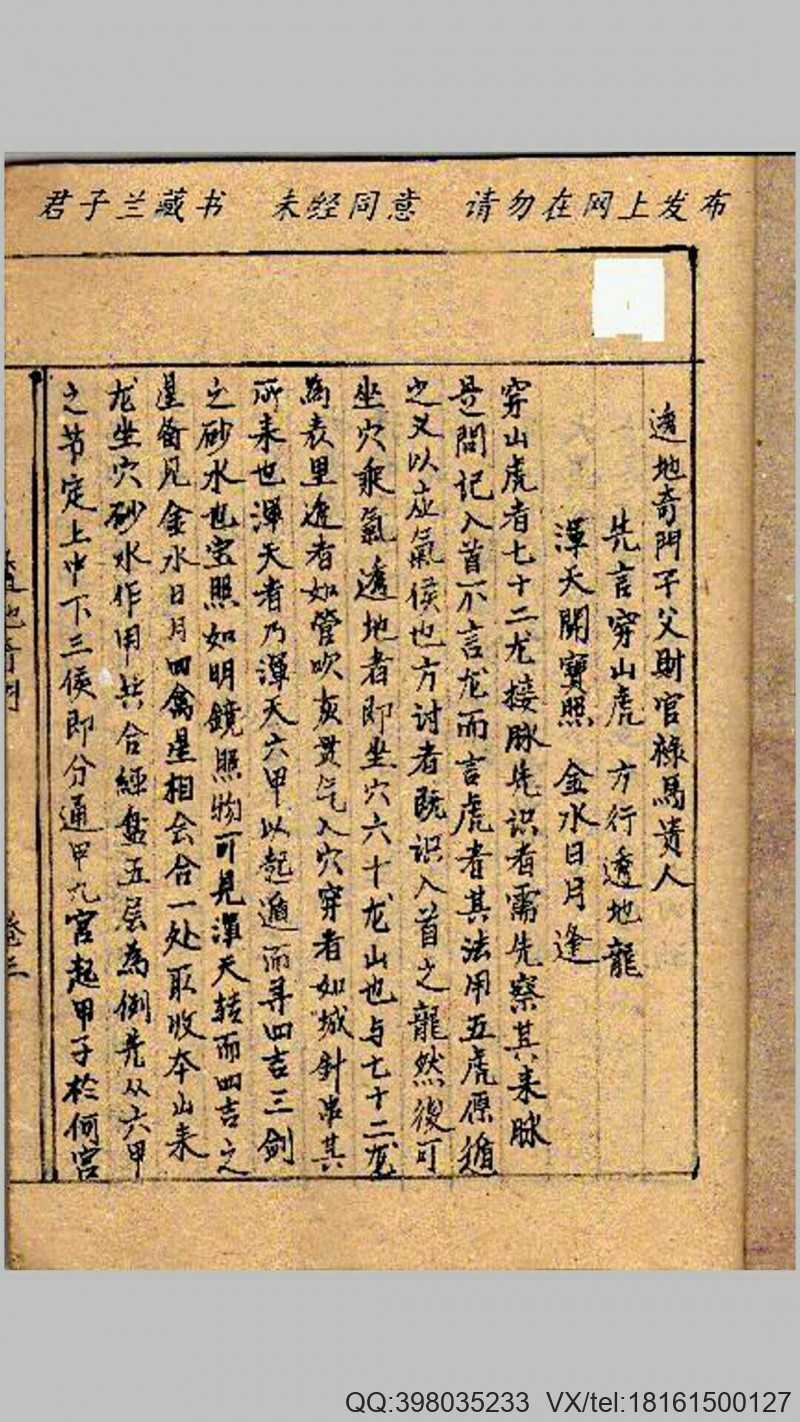 君子兰藏书 未经同意 请勿在网上发布
透地奇門子父財官祿馬貴人
先言穿山虎 方行透地龍
渾天開寶照 金水日月逢
穿山虎者七十二龙接脉先识者需先察其来脉
是问记入首不言龙而言虎者其法用五虎原遁
之义以应氣候也方讨者既识入首之龍然後可
坐穴乘氣透地者即坐穴六十龙山也与七十二龙
為表里透者如管吹灰贯气入穴穿者如城針串其
所来也渾天者乃渾天六甲以起遁而寻四吉三剑
之砂水也宝照如明鏡照物可見渾天转而四吉之
星备见金水日月四禽星相会合一处取收本山来
龙坐穴砂水作用共合經盘五层為例先从六甲
之节定上中下三候即分通甲九宫起甲子於何宫
透地奇門
卷三
QQ:398035233 VX/tel:18161500127